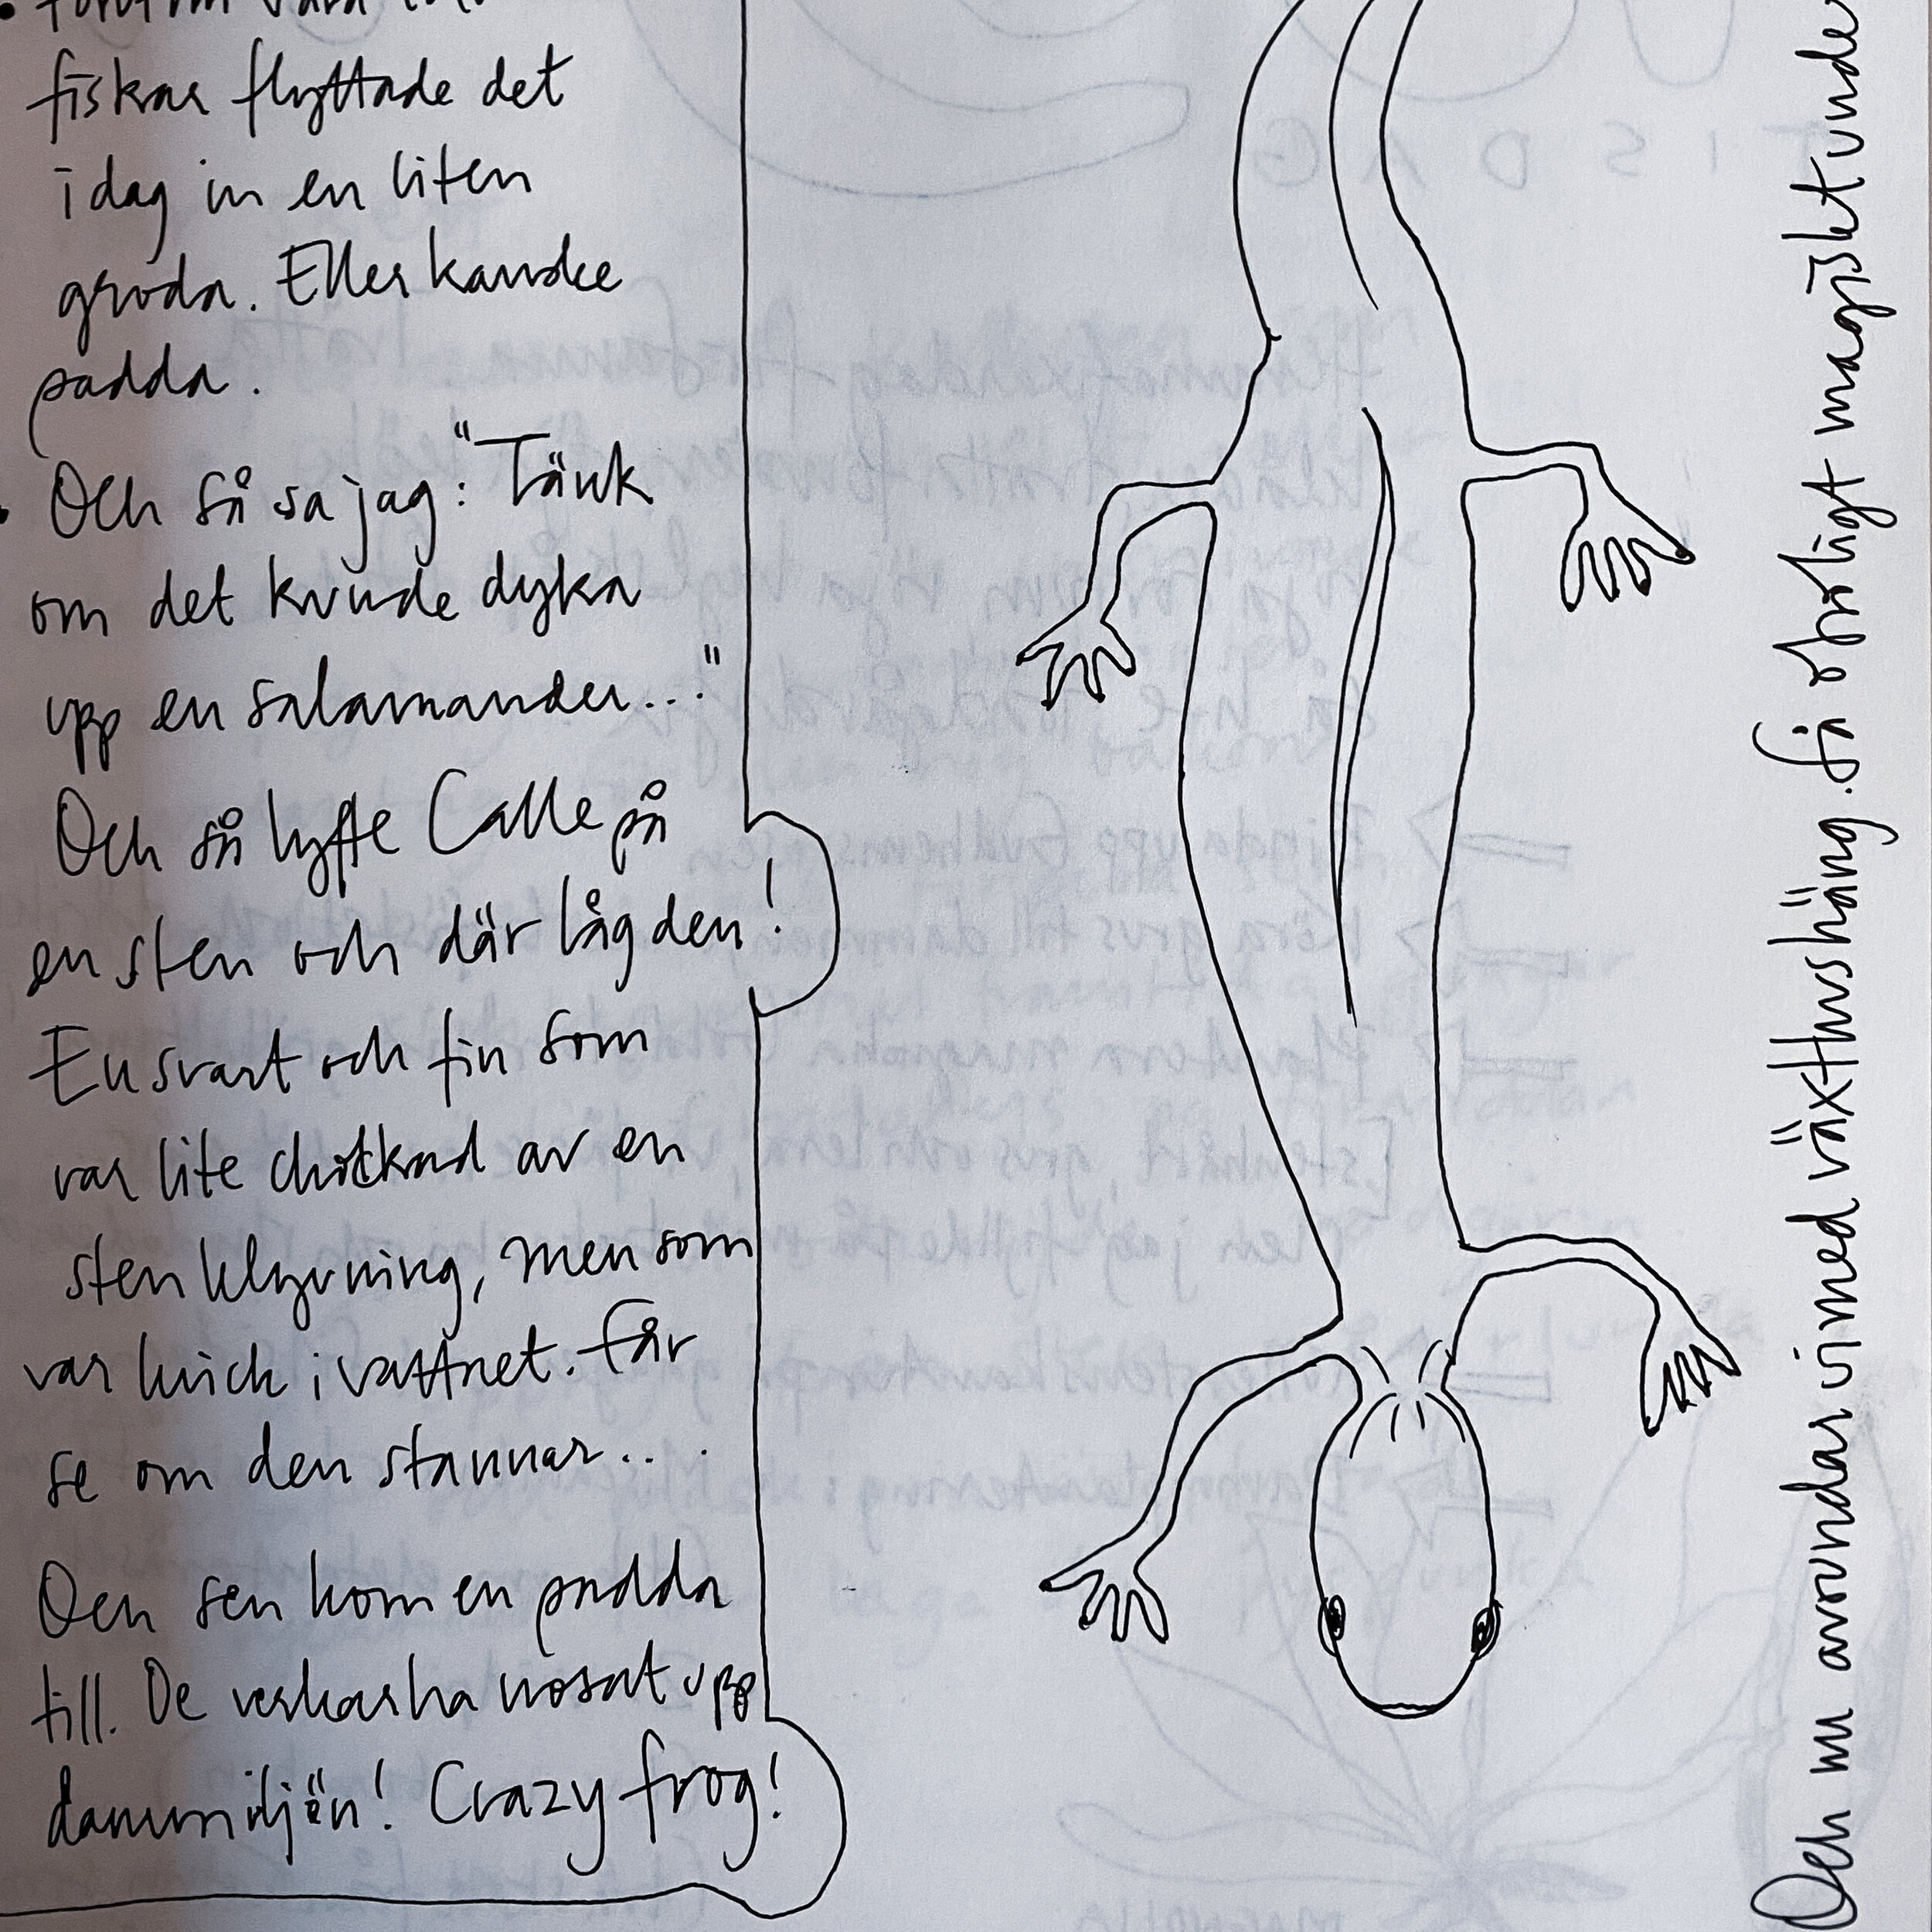 fiskar flyttade det
i dag in en liten
groda. Eller kanske
padda.
Och så sa jag: "Tänk
om det kunde dyka
upp en salamander..."
Och så lyfte Calle på
en sten och där låg den!
En svart och fin som
var lite chockad av en
stenklyvning, men som
var kvick i vattnet. Får
se om den stannar...
Och sen kom en padda
till. De verkar ha nosat upp
dammiljön! Crazy frog!
Och nu avrundar vi med växthushäng. Så otroligt magiskt under
TISDAG